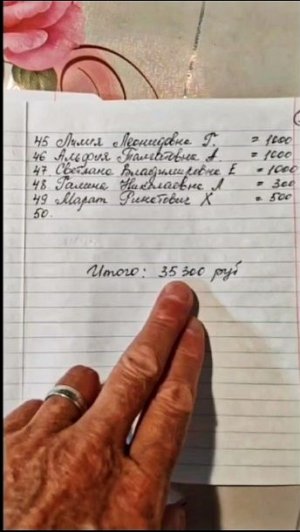 45 Лилия Леонидовна Г. = 1000
46 Альфия Талгатовна А = 1000
47 Светлана Владимировна Е = 1000
48 Галина Николаевна Л = 300
49 Марат Ринатович Х = 500
50.
Итого: 35 300 руб